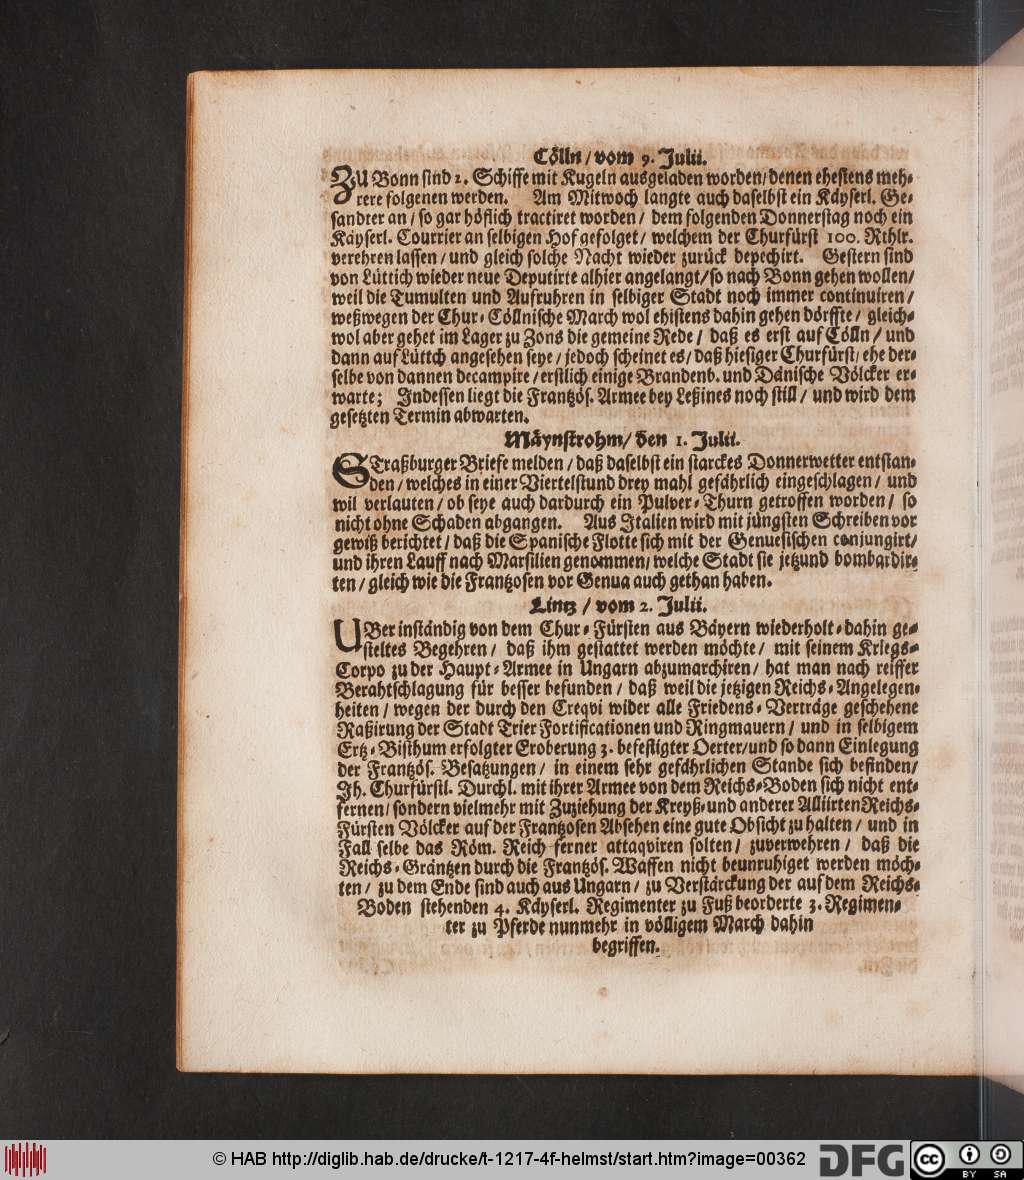 Cölln / vom 9. Julii.
ZU Bonn sind 2. Schiffe mit Kugeln ausgeladen worden / denen ehestens meh-
rere folgenen werden. Am Mitwoch langte auch daselbst ein Käyserl. Ge-
sandter an / so gar höflich tractiret worden / dem folgenden Donnerstag noch ein
Käyserl. Courrier an selbigen Hof gefolget / welchem der Churfürst 100. Rthlr.
verehren lassen / und gleich solche Nacht wieder zurück depechirt. Gestern sind
von Lüttich wieder neue Deputirte alhier angelangt / so nach Bonn gehen wollen /
weil die Tumulten und Aufruhren in selbiger Stadt noch immer continuiren /
weßwegen der Chur-Cöllnische March wol ehistens dahin gehen dörffte / gleich-
wol aber gehet im Lager zu Zons die gemeine Rede / daß es erst auf Cölln / und
dann auf Lüttch angesehen seye / jedoch scheinet es / daß hiesiger Churfürst / ehe der-
selbe von dannen decampire / erstlich einige Brandenb. und Dänische Völcker er-
warte; Indessen liegt die Frantzös. Armee bey Leßines noch still / und wird dem
gesetzten Termin abwarten.
Mäynstrohm / den 1. Julii.
STraßburger Briefe melden / daß daselbst ein starckes Donnerwetter entstan-
den / welches in einer Viertelstund drey mahl gefährlich eingeschlagen / und
wil verlauten / ob seye auch dardurch ein Pulver-Thurn getroffen worden / so
nicht ohne Schaden abgangen. Aus Italien wird mit jüngsten Schreiben vor
gewiß berichtet / daß die Spanische Flotte sich mit der Genuesischen conjungirt /
und ihren Lauff nach Marsilien genommen / welche Stadt sie jetzund bombardir-
ten / gleich wie die Frantzosen vor Genua auch gethan haben.
Lintz / vom 2. Julii.
UBer inständig von dem Chur-Fürsten aus Bäyern wiederholt-dahin ge-
steltes Begehren / daß ihm gestattet werden möchte / mit seinem Kriegs-
Corpo zu der Haupt-Armee in Ungarn abzumarchiren / hat man nach reiffer
Berahtschlagung für besser befunden / daß weil die jetzigen Reichs-Angelegen-
heiten / wegen der durch den Creqvi wider alle Friedens-Verträge geschehene
Raßirung der Stadt Trier Fortificationen und Ringmauern / und in selbigem
Ertz-Bisthum erfolgter Eroberung 3. befestigter Oerter / und so dann Einlegung
der Frantzös. Besatzungen / in einem sehr gefährlichen Stande sich befinden /
Jh. Churfürstl. Durchl. mit ihrer Armee von dem Reichs-Boden sich nicht ent-
fernen / sondern vielmehr mit Zuziehung der Kreyß-und anderer Alliirten Reichs-
Fürsten Völcker auf der Frantzosen Absehen eine gute Obsicht zu halten / und in
Fall selbe das Röm. Reich ferner attaqviren solten / zuverwehren / daß die
Reichs-Gräntzen durch die Frantzös. Waffen nicht beunruhiget werden möch-
ten / zu dem Ende sind auch aus Ungarn / zu Verstärckung der auf dem Reichs-
Boden stehenden 4. Käyserl. Regimenter zu Fuß beorderte 3. Regimen-
ter zu Pferde nunmehr in völligem March dahin
begriffen.
© HAB http://diglib.hab.de/drucke/t-1217-4f-helmst/start.htm?image=00362
DFG
cc BY SA